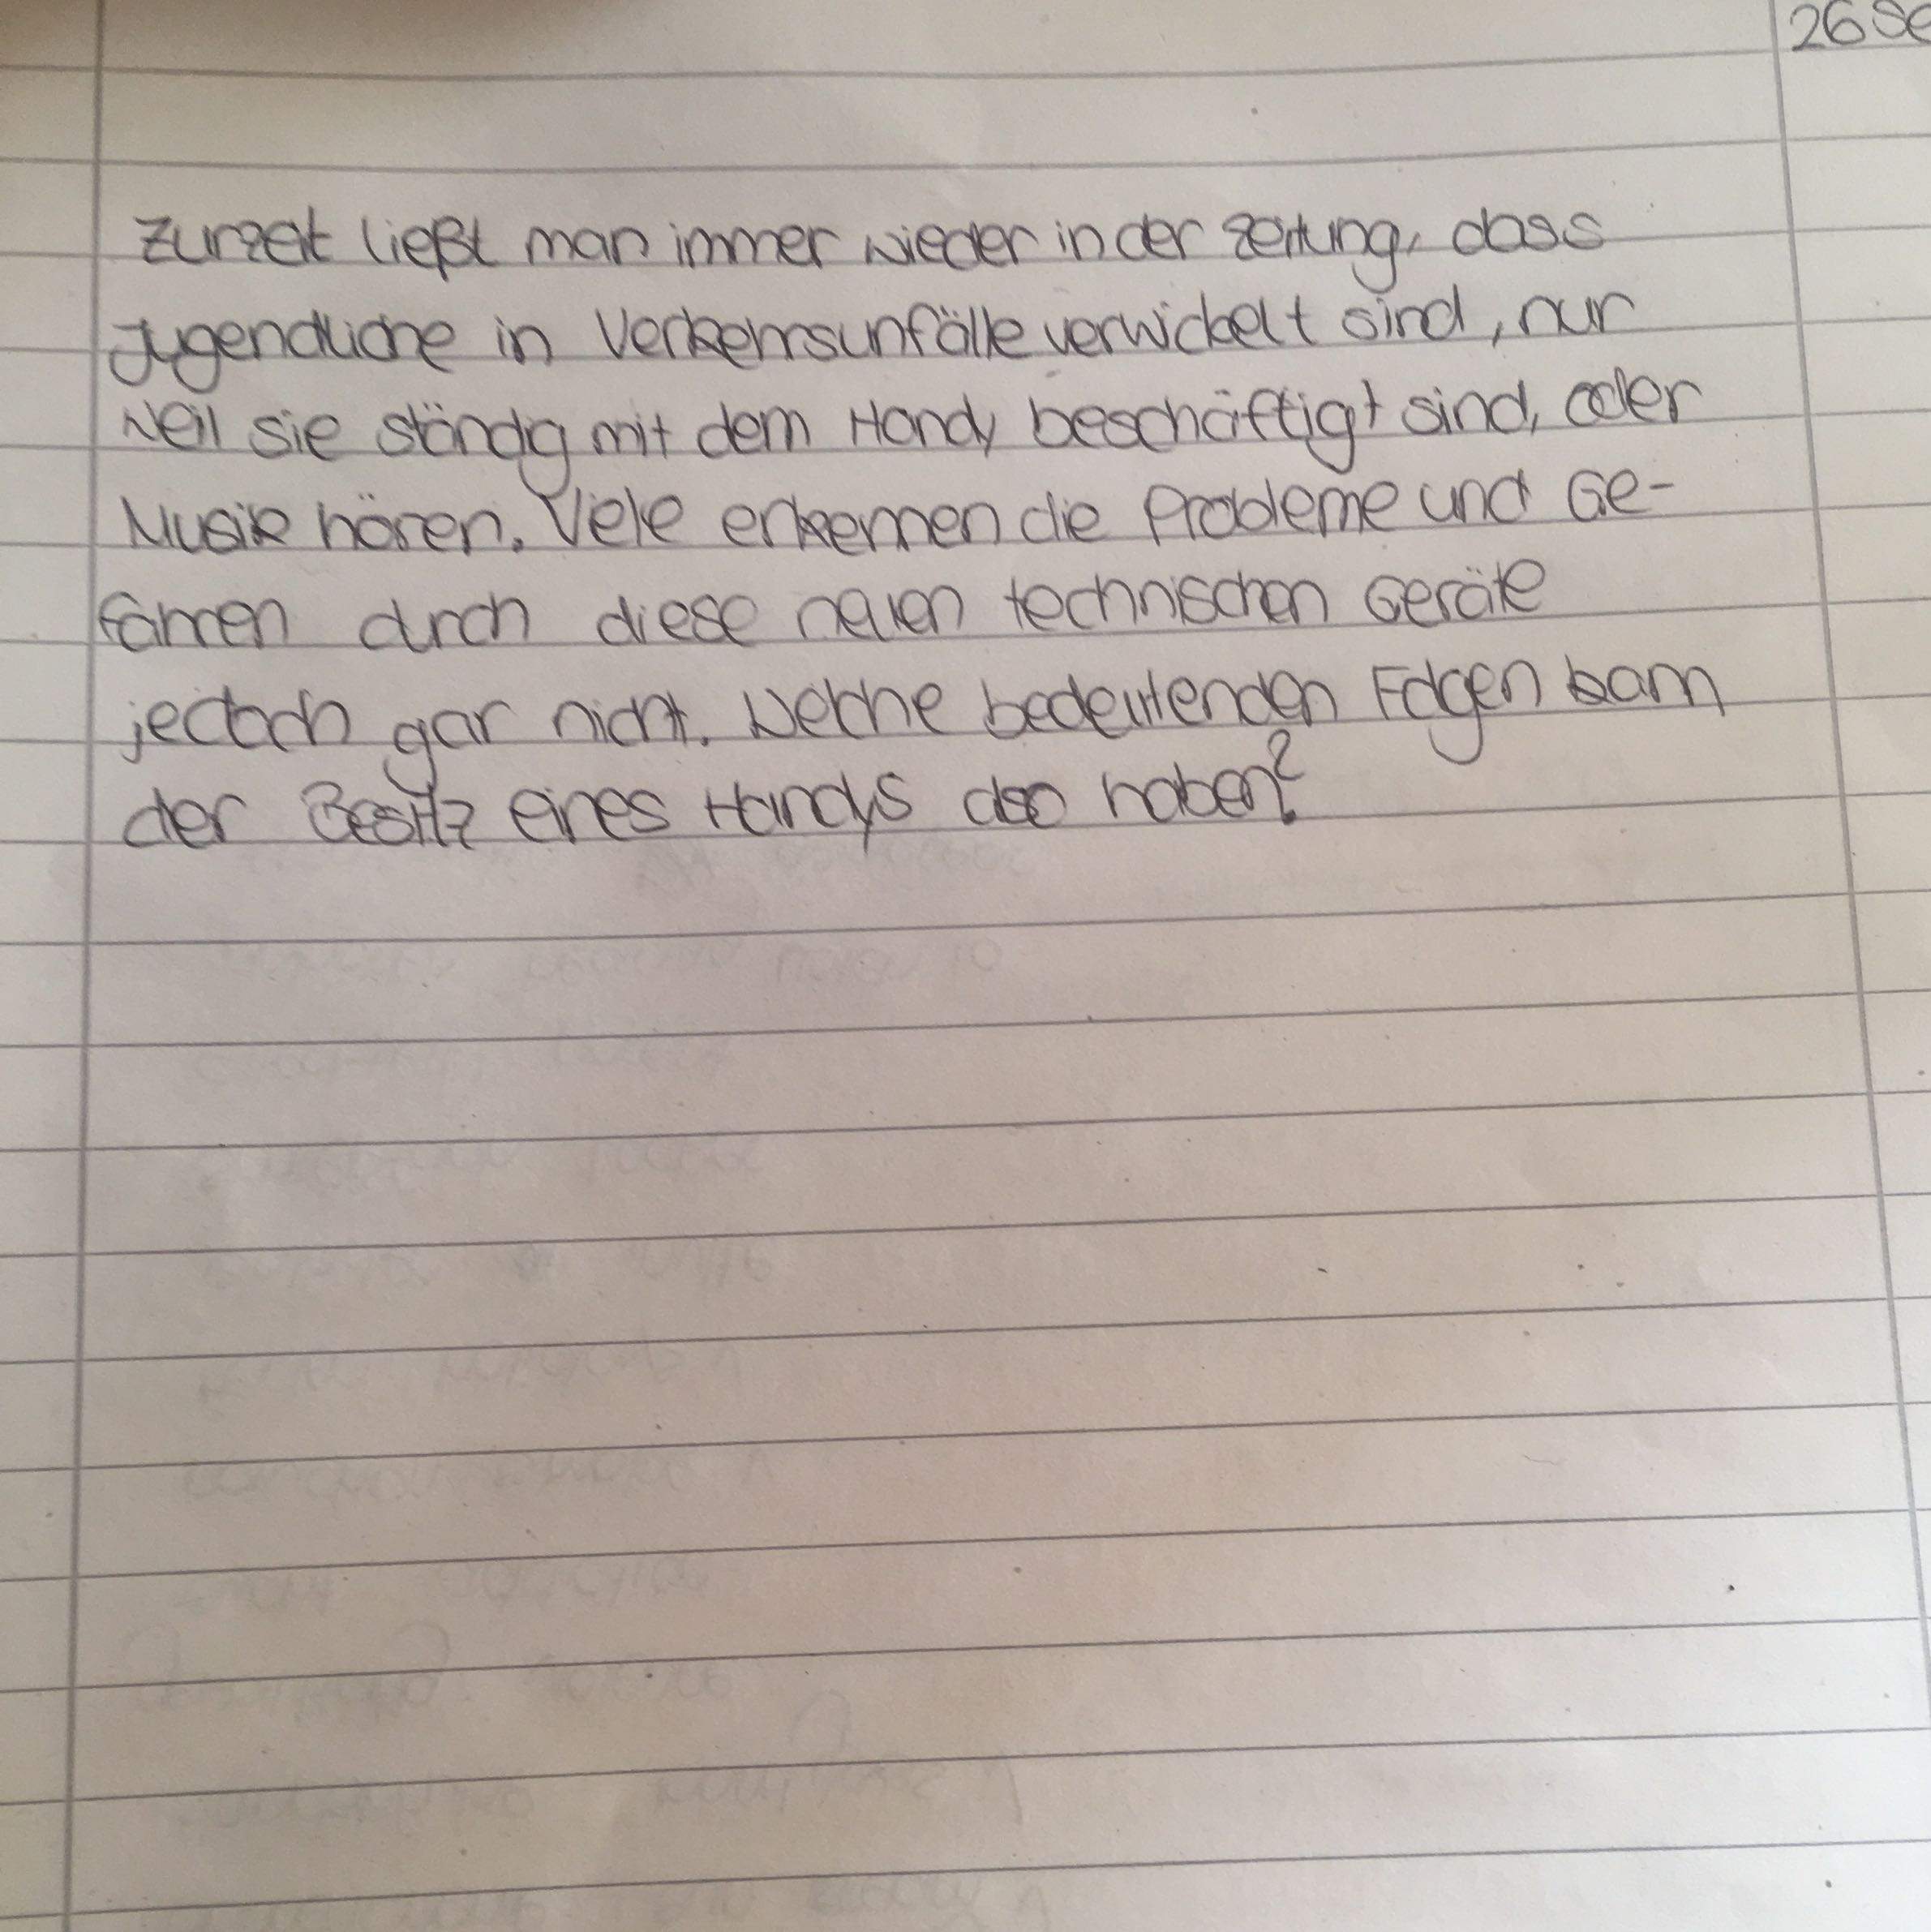 26 Se
Zurzeit ließt man immer wieder in der Zeitung, dass
Jugendliche in Verkehrsunfälle verwickelt sind, nur
weil sie ständig mit dem Handy beschäftigt sind, oder
Musik hören. Viele erkennen die Probleme und Ge-
fahren durch diese neuen technischen Geräte
jedoch gar nicht. Welche bedeutenden Folgen kann
der Besitz eines Handys also haben?